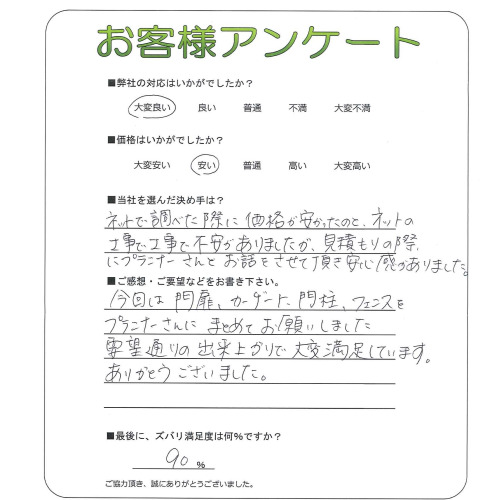 お客様アンケート
■弊社の対応はいかがでしたか？
大変良い 良い 普通 不満 大変不満
■価格はいかがでしたか？
大変安い 安い 普通 高い 大変高い
■当社を選んだ決め手は？
ネットで調べた際に価格が安かったのと、ネットの
工事で工事で不安がありましたが、見積もりの際
にプランナーさんとお話をさせて頂き安心感がありました。
■ご感想・ご要望などをお書き下さい。
今回は門扉、カーゲート、門柱、フェンスを
プランナーさんにまとめてお願いしました
要望通りの出来上がりで大変満足しています。
ありがとうございました。
■最後に、ズバリ満足度は何%ですか？
90 %
ご協力頂き、誠にありがとうございました。